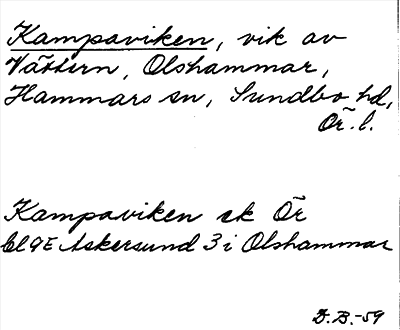 Kampaviken, vik av
Vättern, Olshammar,
Hammars sn, Sundbo hd,
Ör. l.
Kampaviken ek Ör
9E Askersund 3 i Olshammar
B.-59